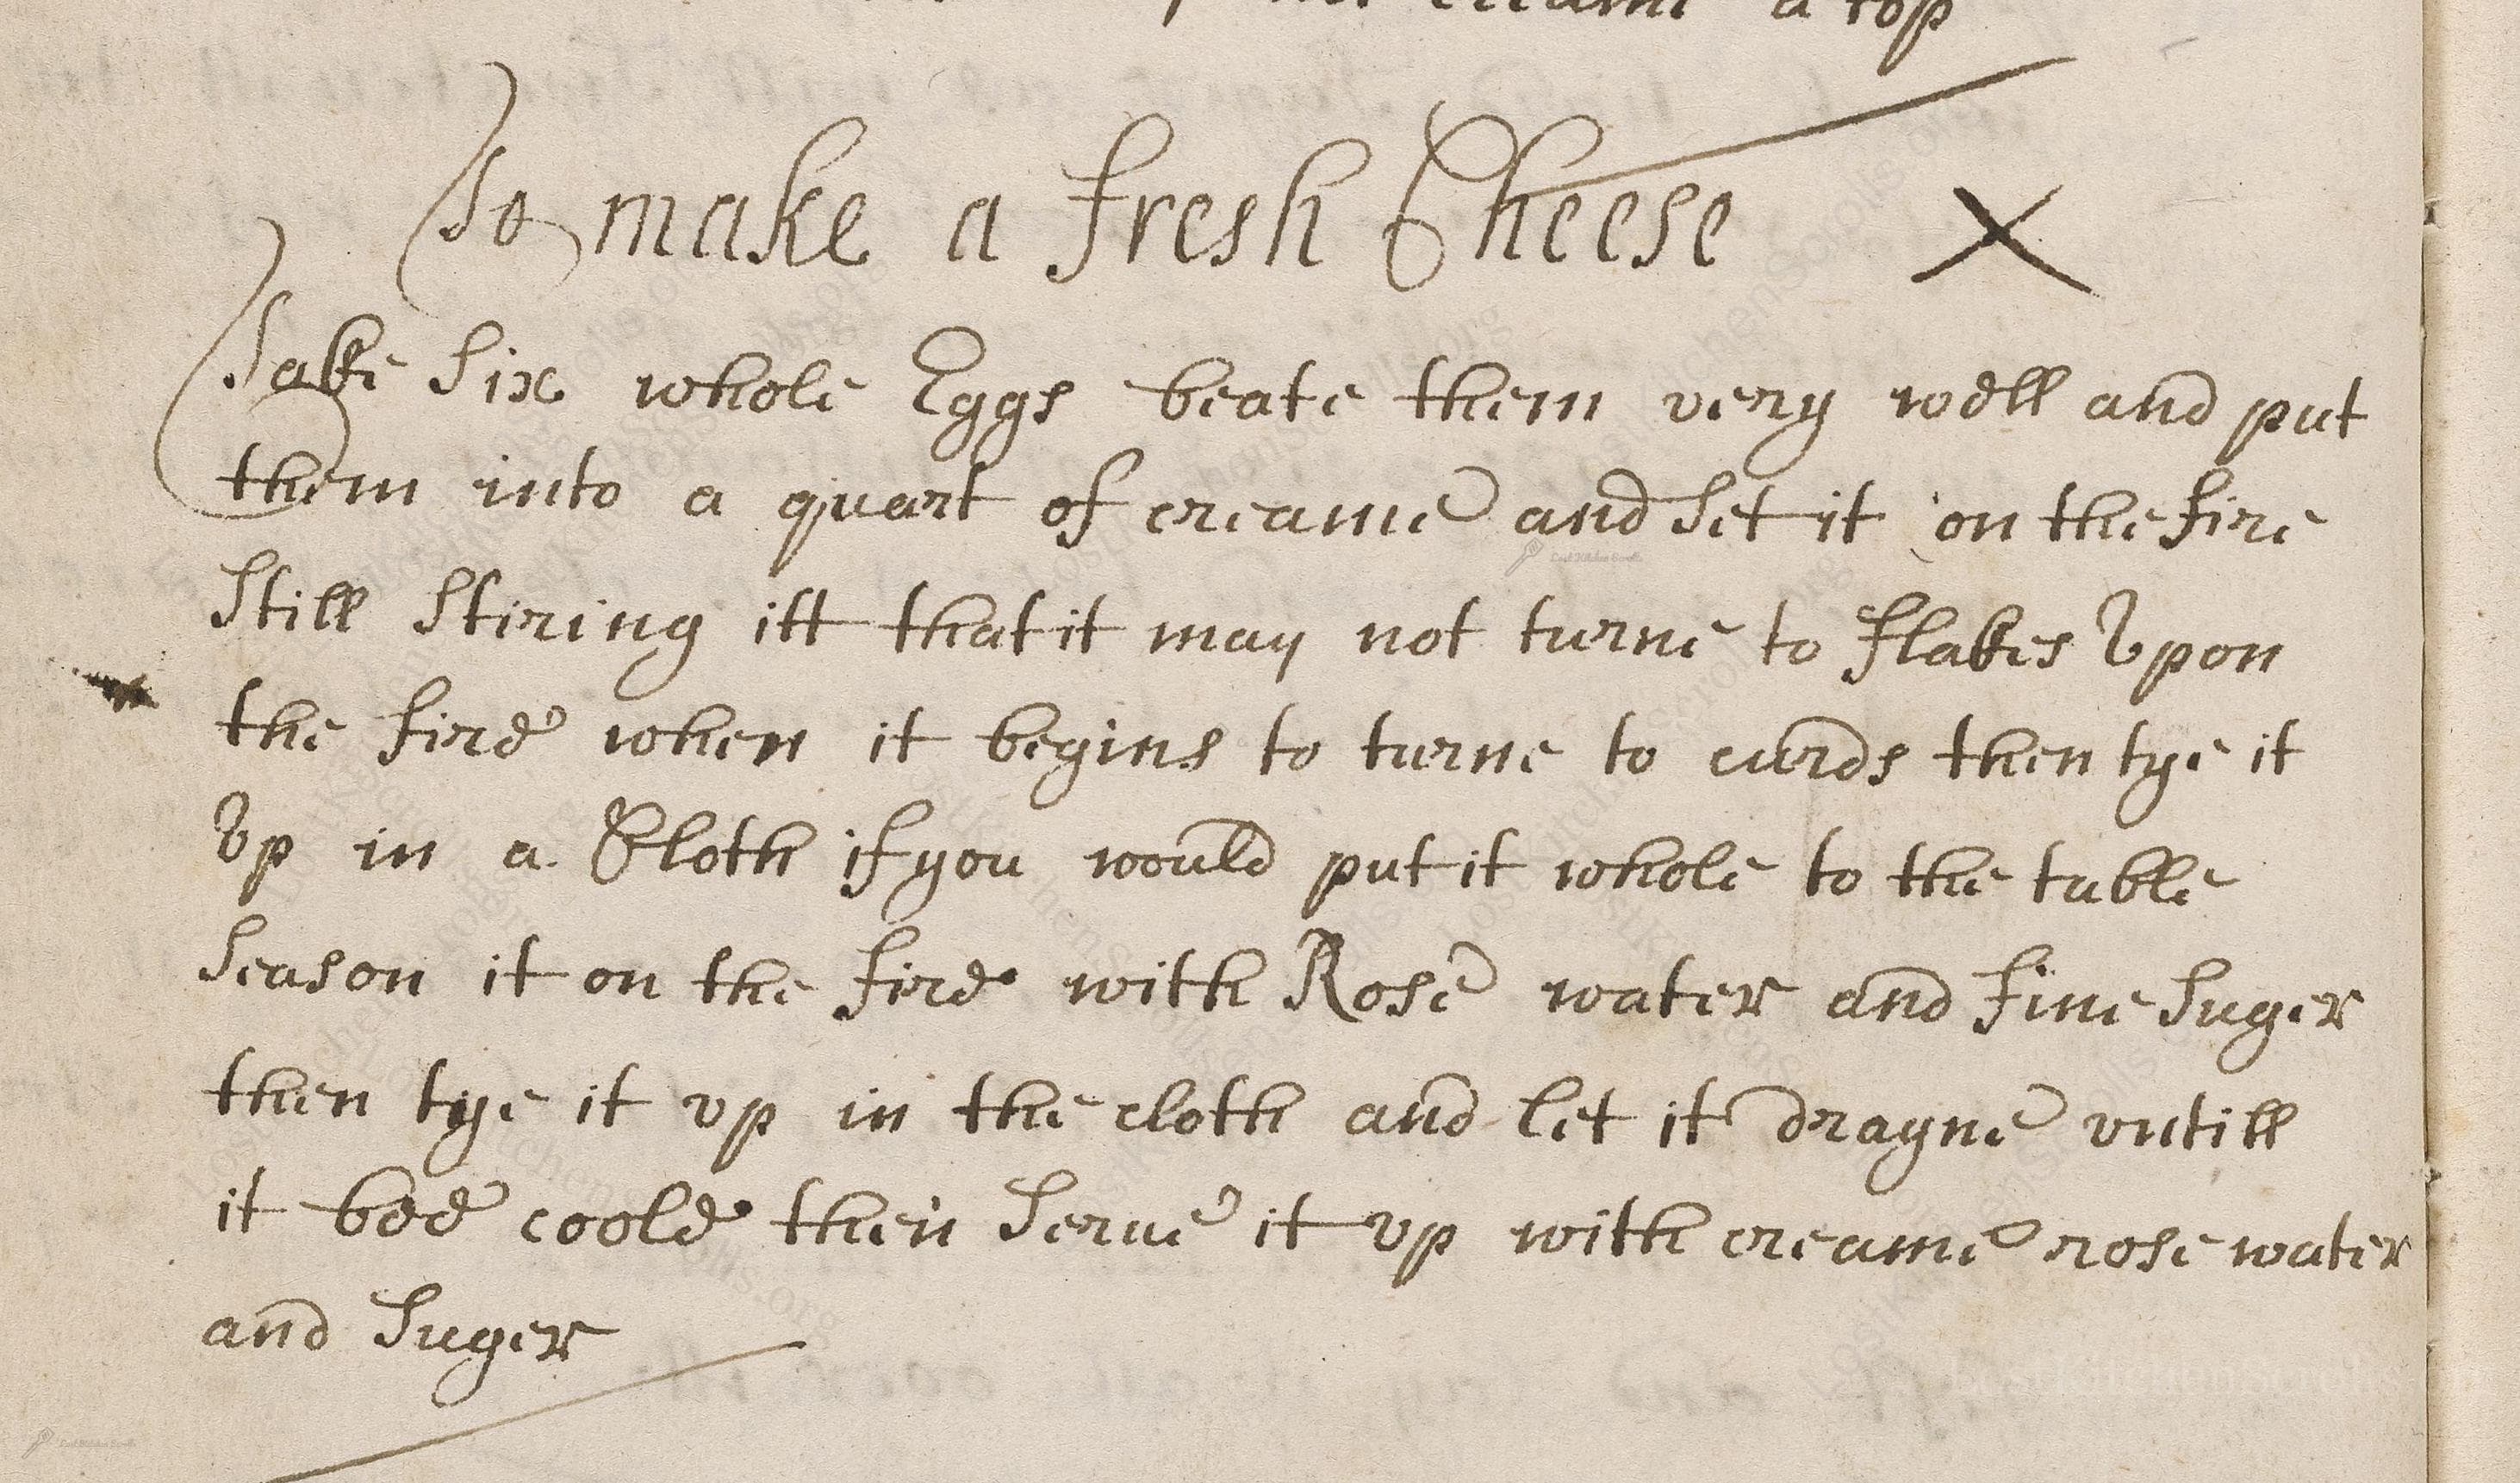 creame a top
To make a fresh Cheese X
Take Six whole Eggs beate them very well and put
them into a quart of creame and Set it on the fire
Still Stiring itt that it may not turne to flakes Vpon
the fire when it begins to turne to curds then tye it
Vp in a Cloth if you would put it whole to the table
Season it on the fire with Rose water and fine Suger
then tye it vp in the cloth and let it drayne vntill
it bee coole then Serue it vp with creame rose water
and Suger